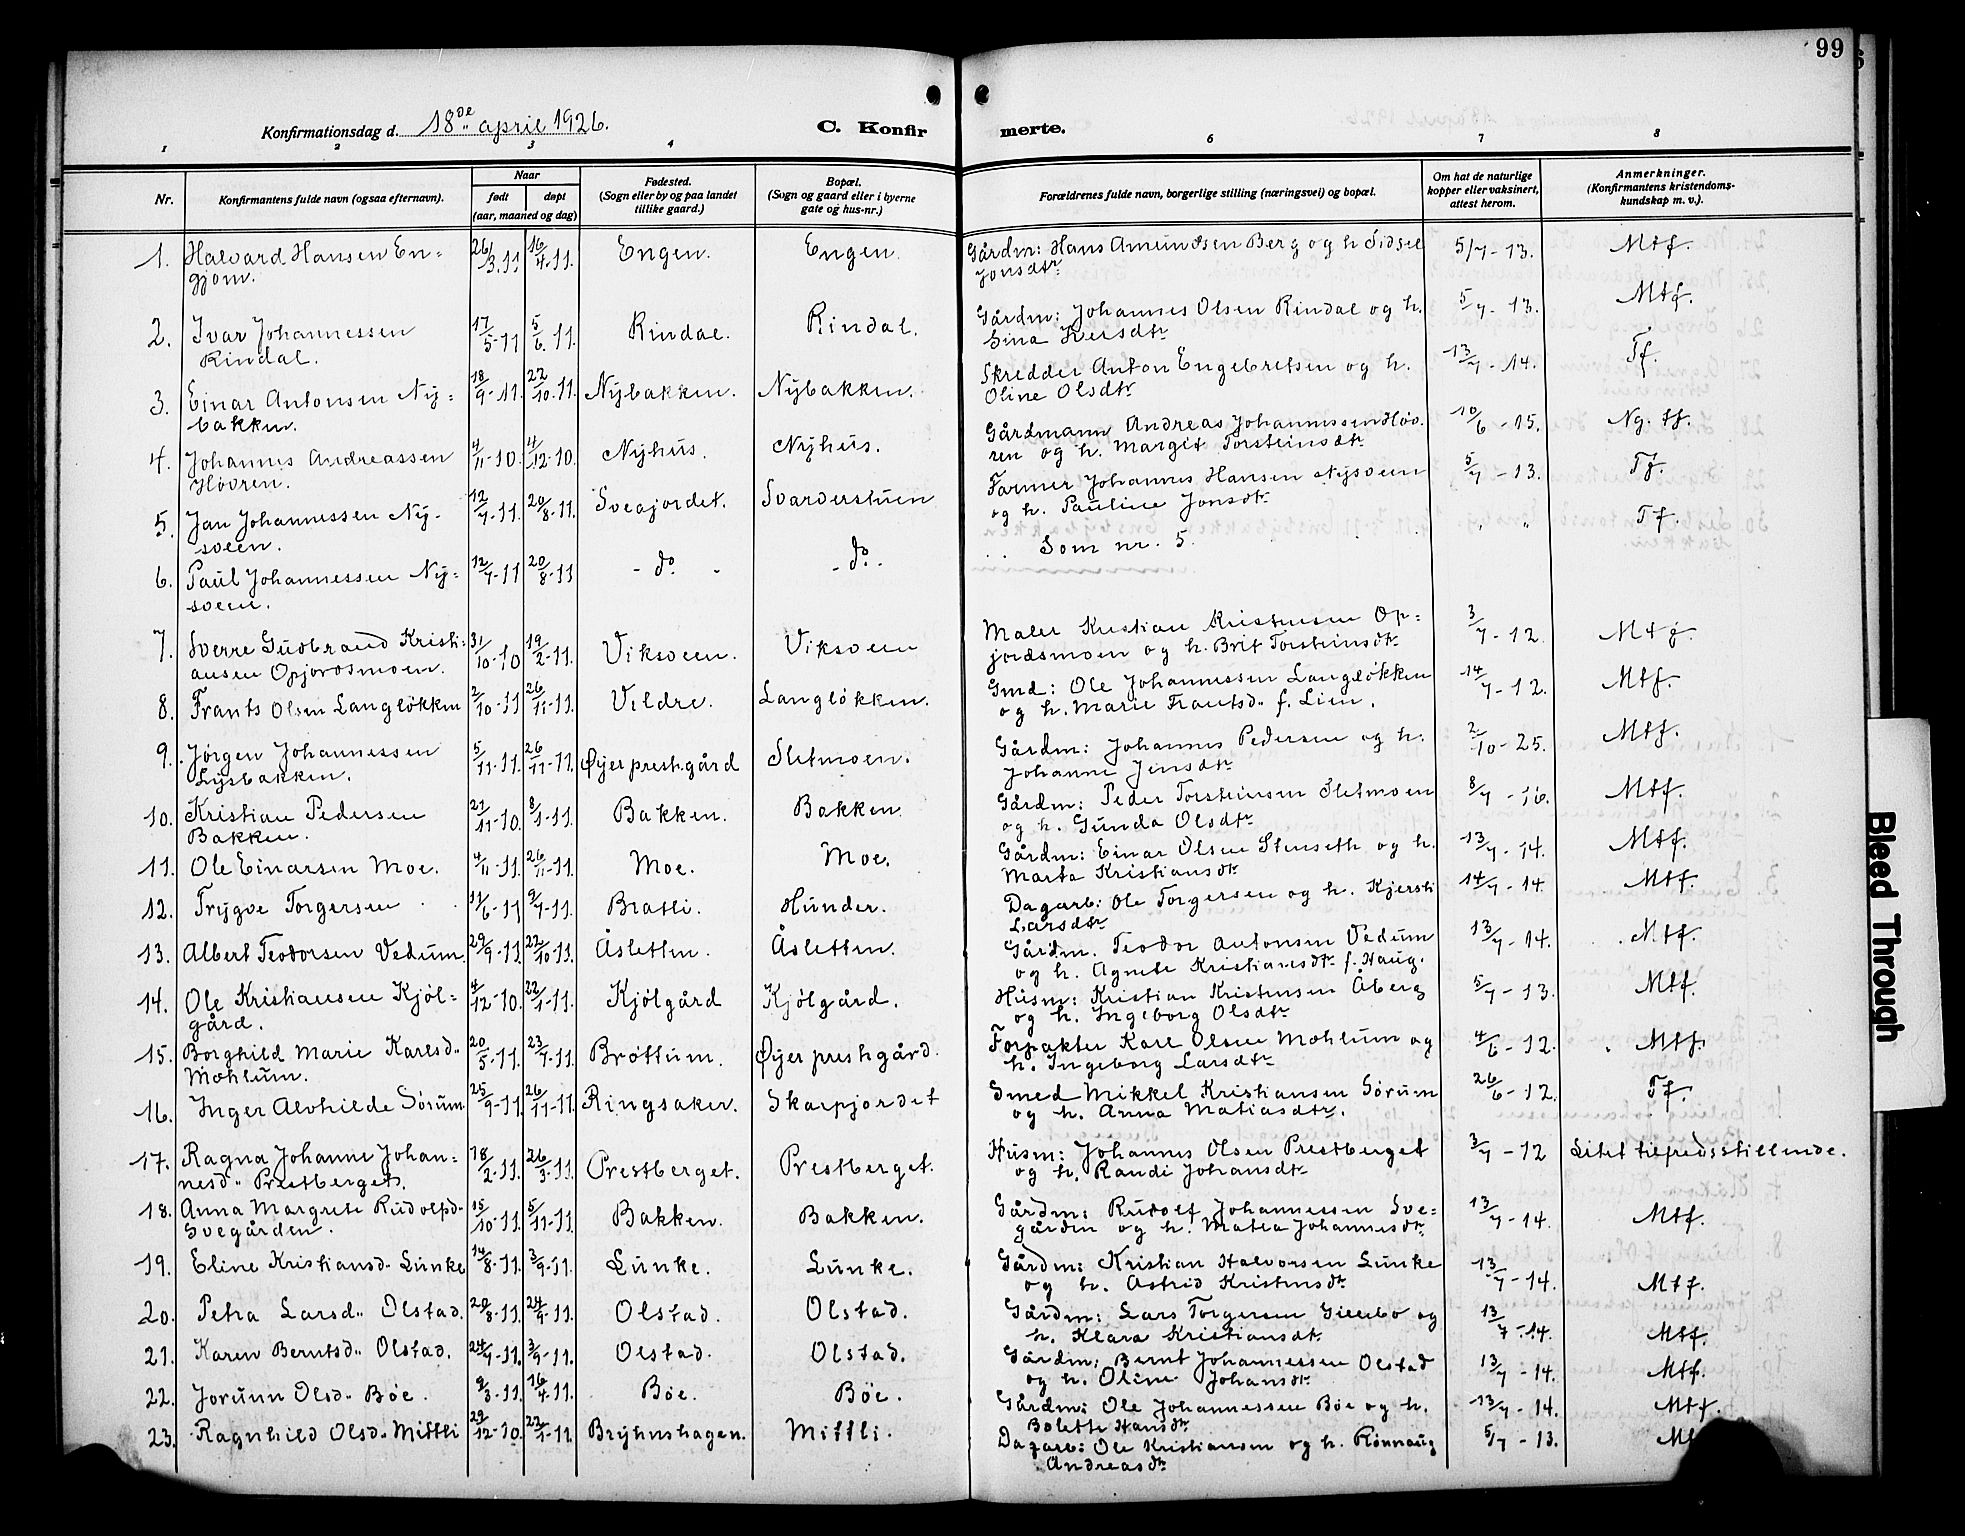 99
Konfirmationsdag d. 18de april 1926.
C. Konfirmerte.
1 2 3 4 6 7 8
Nr.
Konfirmantens fulde navn (ogsaa efternavn).
Naar
født døpt
(aar, maaned og dag)
Fødested.
(Sogn eller by og paa landet
tillike gaard.)
Bopæl.
(Sogn og gaard eller i byerne
gate og hus-nr.)
Forældrenes fulde navn, borgerlige stilling (næringsvei) og bopæl.
Om hat de naturlige
kopper eller vaksinert,
attest herom.
Anmerkninger.
(Konfirmantens kristendoms-
kundskap m. v.).
1. Halvard Hansen En= 26/3.11 16/4.11. Engen. Engen. Gårdm: Hans Amundsen Berg og h Sidsel 5/7-13. Mtf.
gjom. Jonsdtr
2. Ivar Johannessen 17/5-11 5/6.11. Rindal. Rindal. Gårdm: Johannes Olsen Rindal og h. 5/7-13. Mtf.
Rindal. Sina Iversdtr
3. Einar Antonsen Ny= 18/9-11. 22/10.11. Nybakken. Nybakken. Skredder Anton Engebretsen og h. 13/7-14. Tf.
bakken. Oline Olsdtr
4. Johannes Andreassen 4/11-10. 4/12-10. Nyhus. Nyhus. Gårdmann Andreas Johannessen Høv. 10/6-15. Ng. tf.
Høvren. ren og h. Margit Torsteinsdtr
5. Jan Johannessen Ny- 12/7-11. 20/8-11. Sveajordet. Svarverstuen Farmer Johannes Hansen Nysveen 5/7-13. Tf.
sveen. og h. Pauline Jonsdtr
6. Paul Johannessen Ny= 12/7-11 20/8-11 - do. - - do. - Som nr. 5. " " Tf.
sveen.
7. Sverre Gudbrand Kristi= 31/10-10 19/2-11. Viksveen. Viksveen Maler Kristian Kristensen Op= 3/7-12. Mtf.
ansen Opjordsmoen. jordsmoen og h. Brit Torsteinsdtr
8. Frants Olsen Langløkken 2/10-11 26/11-11. Vildre. Langløkken. Gmd: Ole Johannessen Langløkken 14/7-12. Mtf.
og h. Marie Frantsd. f. Lien.
9. Jørgen Johannessen 5/11-11. 26/11-11. Øyer prestegård Sletmoen. Gårdm: Johannes Pedersen og h. 2/10-25. Mtf.
Lysbakken. Johanne Jensdtr
10. Kristian Pedersen 27/11-10. 8/1-11. Bakken. Bakken. Gårdm: Peder Torsteinsen Sletmoen 8/7-16. Mtf.
Bakken. og h. Gunda Olsdtr
11. Ole Einarsen Moe. 4/11-11. 26/11-11. Moe. Moe. Gårdm: Einar Olsen Stenseth og h. 13/7-14. Mtf.
Marta Kristiansdtr
12. Trygve Torgersen 11/6-11 9/7-11. Bratli. Hunder. Dagarb: Ole Torgersen og h. Kjersti 14/7-14. Mtf.
Larsdtr
13. Albert Teodorsen Vedum. 29/9-11. 22/10-11. Åsletten. Åsletten. Gårdm. Teodor Antonsen Vedum 13/7-14. Mtf.
og h. Agnete Kristiansdtr f. Haug.
14. Ole Kristiansen Kjøl= 4/12-10. 22/1-11. Kjølgård Kjølgård. Husm: Kristian Kristensen Åberg 5/7-13. Mtf.
gård. og h. Ingeborg Olsdtr
15. Borghild Marie Karlsd.. 20/5-11. 23/7-11. Brøttum. Øyer prestegård. Forpakter Karl Olsen Mæhlum og 4/6-12. Mtf.
Mæhlum. h. Ingeborg Larsdtr
16. Inger Alvhilde Sørum 25/9-11. 26/11-11. Ringsaker. Skarpjordet Smed Mikkel Kristiansen Sørum 26/6-12. Tf.
og h. Anna Matiasdtr.
17. Ragna Johanne Johan= 18/2-11. 26/3-11. Prestberget. Prestberget. Husm: Johannes Olsen Prestberget 3/7-12 Litet tilfredsstillende.
nesd.. Prestberget. og h. Randi Johansdtr
18. Anna Margrete Rudolfsd- 15/10-11. 5/11-11. Bakken. Bakken. Gårdm: Rudolf Johannessen Sve= 13/7-14. Mtf.
Svegården. gården og h. Matea Johannesdtr
19. Eline Kristiansd- Lunke 14/8-11. 3/9-11. Lunke. Lunke. Gårdm: Kristian Halvorsen Lunke 13/7-14. Mtf.
og h. Astrid Kristensdtr
20. Petra Larsd.. Olstad. 20/8-11. 24/9-11. Olstad. Olstad. Gårdm: Lars Torgersen Gillebo og 13/7-14. Mtf.
h. Klara Kristiansdtr
21. Karen Berntsd.. Olstad. 24/7-11. 3/9-11. Olstad. Olstad. Gårdm: Bernt Johannessen Olstad 13/7-14. Mtf.
og h. Oline Johansdtr
22. Jorunn Olsd- Bøe. 9/3-11. 16/4-11. Bøe. Bøe. Gårdm: Ole Johannessen Bøe og h. 13/7-14. Mtf.
Bolette Hansdtr
23. Ragnhild Olsd- Mittli 29/12-10. 22/1-11. Bryhnshagen. Mittli. Dagarb: Ole Kristiansen og h. Rønnaug 5/7-13.
Andreasdtr
Bleed Through